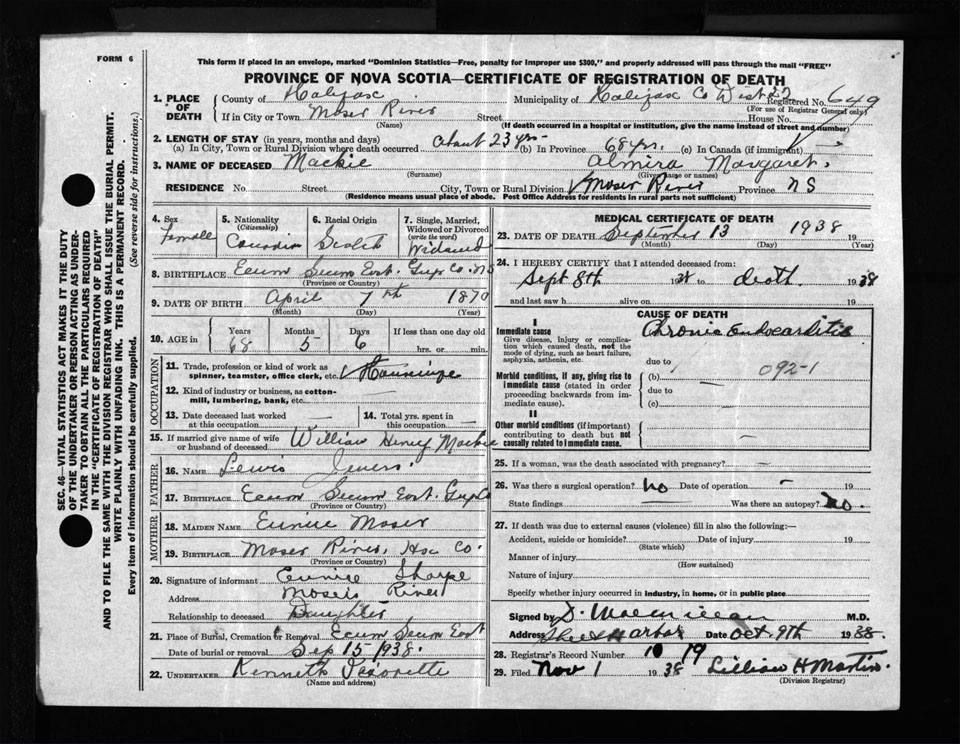 FORM 6
This form if placed in an envelope, marked "Dominion Statistics—Free, penalty for improper use $300," and properly addressed will pass through the mail "FREE"
PROVINCE OF NOVA SCOTIA—CERTIFICATE OF REGISTRATION OF DEATH
1. PLACE OF DEATH
County of Halifax Municipality of Halifax Co Dist 27 Registered No. 649
(For use of Registrar General only)
If in City or Town Moser River Street House No.
(Name) (If death occurred in a hospital or institution, give the name instead of street and number)
2. LENGTH OF STAY (in years, months and days)
(a) In City, Town or Rural Division where death occurred about 23 yrs- (b) In Province 68 yrs. (c) In Canada (if immigrant) —
3. NAME OF DECEASED Mackie Almira Margaret.
(Surname) (Given name or names)
RESIDENCE No. Street City, Town or Rural Division Moser River Province N S
(Residence means usual place of abode. Post Office Address for residents in rural parts not sufficient)
4. Sex Female
5. Nationality (Citizenship) Canadian
6. Racial Origin Scotch
7. Single, Married, Widowed or Divorced (write the word) Widowed
8. BIRTHPLACE Ecum Secum East. Guys Co. NS
(Province or Country)
9. DATE OF BIRTH April 7th 1870
(Month) (Day) (Year)
10. AGE in Years 68 Months 5 Days 6 If less than one day old hrs. or min.
OCCUPATION
11. Trade, profession or kind of work as spinner, teamster, office clerk, etc.
12. Kind of industry or business, as cotton-mill, lumbering, bank, etc.
13. Date deceased last worked at this occupation —
14. Total yrs. spent in this occupation —
15. If married give name of wife or husband of deceased William Henry Mackie
FATHER
16. NAME Lewis
17. BIRTHPLACE Ecum Secum East. Guys Co
(Province or Country)
MOTHER
18. MAIDEN NAME Eunice Moser
19. BIRTHPLACE Moser River, Hx Co.
(Province or Country)
20. Signature of informant Eunice Sharpe
Address Mosers River
Relationship to deceased Daughter
21. Place of Burial, Cremation or Removal Ecum Secum East
Date of burial or removal Sep 15-1938.
22. UNDERTAKER Kenneth
(Name and address)
MEDICAL CERTIFICATE OF DEATH
23. DATE OF DEATH September 13 1938 19
(Month) (Day) (Year)
24. I HEREBY CERTIFY that I attended deceased from:
Sept 8th 1938 to death. 1938
and last saw h alive on 19
CAUSE OF DEATH
I
Immediate cause Chronic endocarditis
Give disease, injury or complication which caused death, not the mode of dying, such as heart failure, asphyxia, asthenia, etc.
due to
092-1
Morbid conditions, if any, giving rise to immediate cause (stated in order proceeding backwards from immediate cause).
(b) —
due to
(c)
II
Other morbid conditions (if important) contributing to death but not causally related to immediate cause. —
25. If a woman, was the death associated with pregnancy? —
26. Was there a surgical operation? No Date of operation - 19
State findings Was there an autopsy? No.
27. If death was due to external causes (violence) fill in also the following:—
Accident, suicide or homicide? Date of injury 19
(State which)
Manner of injury
(How sustained)
Nature of injury
Specify whether injury occurred in industry, in home, or in public place
Signed by M.D.
Address Sheet Harbor Date Oct 9th 1938.
28. Registrar's Record Number 19
29. Filed Nov 1 1938 Lillian H Martin.
(Division Registrar)
SEC. 46—VITAL STATISTICS ACT MAKES IT THE DUTY
OF THE UNDERTAKER OR PERSON ACTING AS UNDER-
TAKER TO OBTAIN ALL THE PARTICULARS REQUIRED
IN THE "CERTIFICATE OF REGISTRATION OF DEATH"
AND TO FILE THE SAME WITH THE DIVISION REGISTRAR WHO SHALL ISSUE THE BURIAL PERMIT.
WRITE PLAINLY WITH UNFADING INK. THIS IS A PERMANENT RECORD.
Every item of information should be carefully supplied. (See reverse side for instructions.)